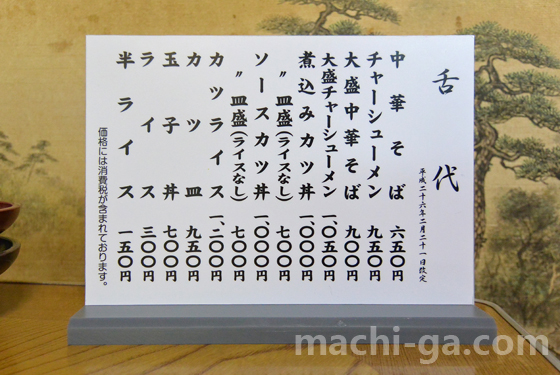 舌代
平成二十六年二月二十一日改定
中華そば 六五〇円
チャーシューメン 九五〇円
大盛中華そば 九〇〇円
大盛チャーシューメン 一、〇五〇円
煮込みカツ丼 一、〇〇〇円
〃皿盛(ライスなし) 七〇〇円
ソースカツ丼 一、〇〇〇円
〃皿盛(ライスなし) 七〇〇円
カツライス 一、二〇〇円
カツ皿 九五〇円
玉子丼 七〇〇円
ライス 三〇〇円
半ライス 一五〇円
価格には消費税が含まれております。
machi-ga.com